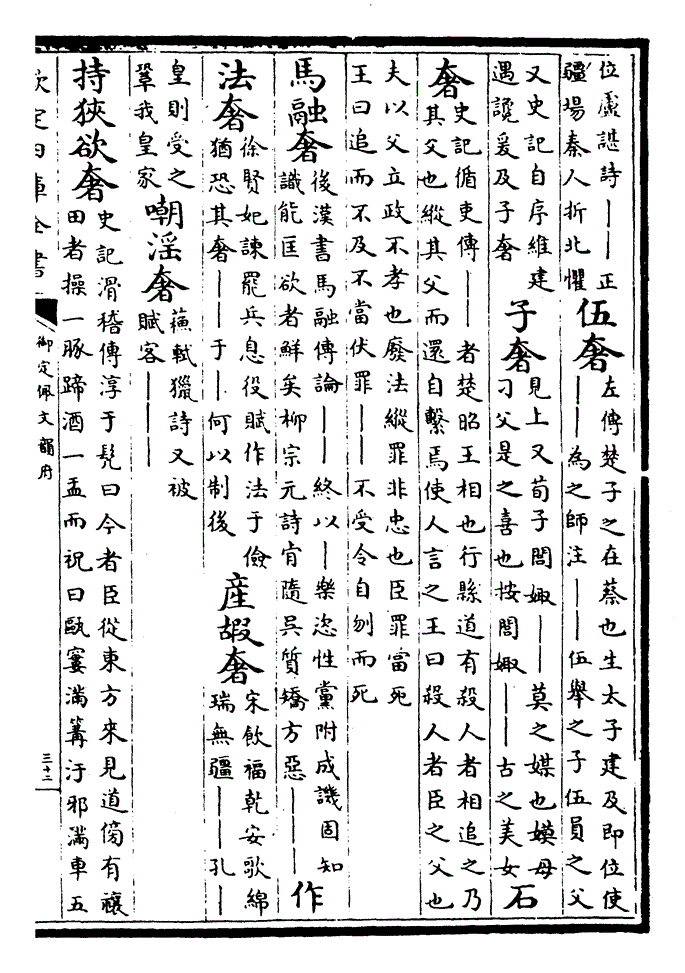 位廬諶詩｜｜正
疆場秦人折北懼
伍奢
左傳楚子之在蔡也生太子建及即位使
｜｜為之師注｜｜伍舉之子伍員之父
又史記自序維建
遇讒爰及子奢
子奢
見上又荀子閭娵｜｜莫之媒也嫫母
刁父是之喜也按閭娵｜｜古之美女
石
奢
史記循吏傳｜｜者楚昭王相也行縣道有殺人者相追之乃
其父也縱其父而還自繫焉使人言之王曰殺人者臣之父也
夫以父立政不孝也廢法縱罪非忠也臣罪當死
王曰追而不及不當伏罪｜｜不受令自刎而死
馬融奢
後漢書馬融傳論｜｜終以｜樂恣性黨附成譏固知
識能匡欲者鮮矣柳宗元詩肯隨吳質矯方惡｜｜｜
作
法奢
徐賢妃諫罷兵息役賦作法于儉
猶恐其奢｜｜于｜何以制後
産嘏奢
宋飲福乾安歌綿
瑞無疆｜｜孔｜
皇則受之
鞏我皇家
嘲淫奢
蘇軾獵詩又被
賦客｜｜｜
持狹欲奢
史記滑稽傳淳于髡曰今者臣從東方來見道傍有禳
田者操一豚蹄酒一盂而祝曰甌窶滿篝汙邪滿車五
欽定四庫全書
御定佩文韻府
三十二